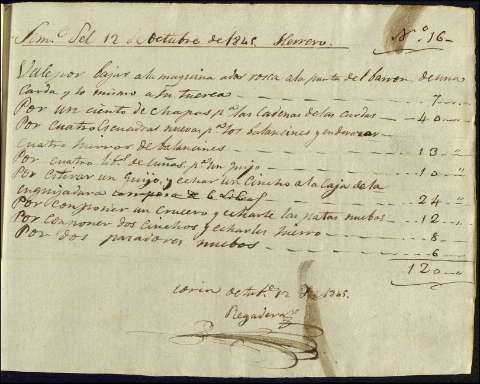 Sem.ª del 12 de Octubre de 1845. Herrero. N.º 16
Vale por bajar a la maquina a dos rosca a la punta del barron de una
carda y lo mismo a su tuerca 7
Por un ciento de chapas p.ª las Cadenas de las cardas 40
Por cuatro Escuadras nuevas p.ª los balansines y enderezar
cuatro hierros de balansines 13 "
Por cuatro lib.s de cuñas p.ª un Guijo 10 "
Por estirar un Guijo y echar un Cincho a la Caja de la
24 "
Por componer un Crusero y echarle las patas nuebas 12 "
Por componer dos Cinchos y echarles hierro 8 "
Por dos pasadores nuebos 6
120
octub.e 12 de 1845.
Regadera